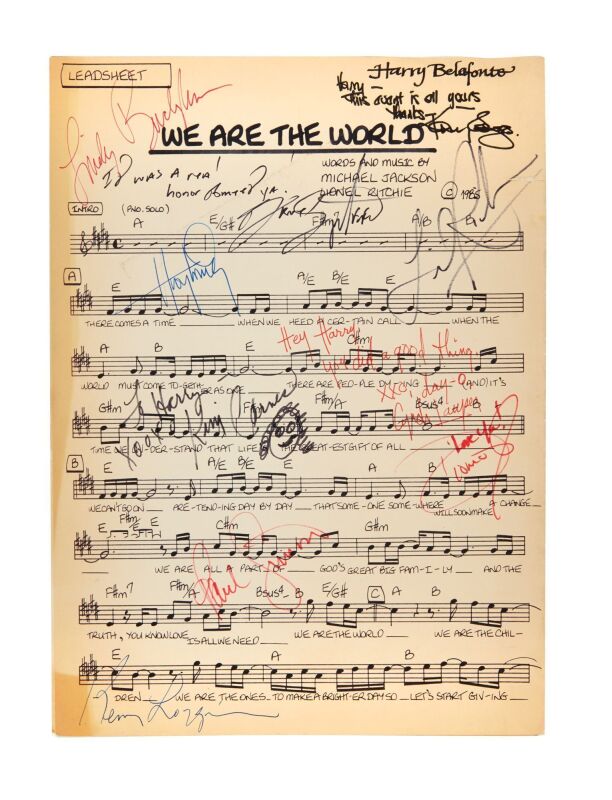 LEADSHEET
Harry Belafonte
Harry -
this event is all yours
thanks -
WE ARE THE WORLD
It was a real
honor
WORDS AND MUSIC BY
MICHAEL JACKSON
LIONEL RITCHIE
© 1985
INTRO (PNO. SOLO) A E/G# F#m7 A/B E
A E A/E B/E E
THERE COMES A TIME WHEN WE HEED A CER-TAIN CALL WHEN THE
A B E C#m
WORLD MUST COME TO-GETH-ER AS ONE THERE ARE PEO-PLE DY-ING (AND) IT'S
Hey Harry
you did a good thing
xx day-o
Cyndi Lauper
G#m F#m/A Bsus4 B
TIME WE -DER-STAND THAT LIFE THE GREATEST GIFT OF ALL
To Harry
Kim Carnes
Love Ya!
B E A/E B/E E A B E
WE CAN'T GO ON PRE-TEND-ING DAY BY DAY THAT SOME-ONE SOME-WHERE WILL SOON MAKE A CHANGE
F#m
E E C#m G#m
WE ARE ALL A PART OF GOD'S GREAT BIG FAM-I-LY AND THE
Paul Simon
F#m7 F#m/A Bsus4 B E/G# C A B E
TRUTH, YOU KNOW LOVE IS ALL WE NEED WE ARE THE WORLD WE ARE THE CHIL-
E A B
DREN WE ARE THE ONES TO MAKE A BRIGHT-ER DAY SO LET'S START GIV-ING
Kenny Loggins